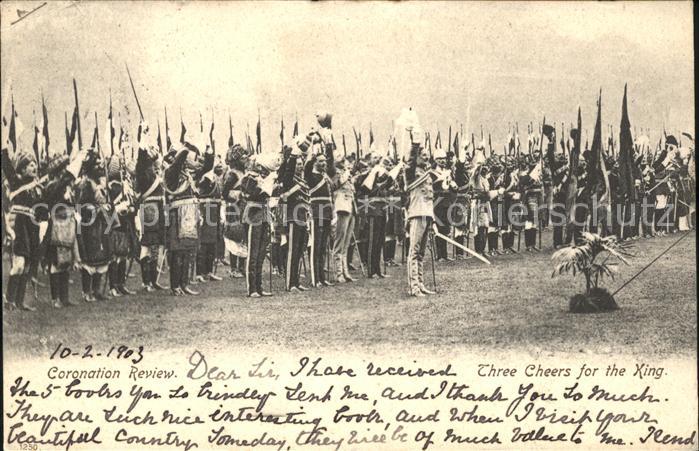 copyright Kerkenmeier Kopierschutz
10-2-1903
Coronation Review. Dear Sir, I have received Three Cheers for the King.
The 5 books you so kindley sent me, and I thank you so much.
They are such nice interesting book, and when I visit your
beautiful Country Someday, they will be of much value to me. I send
1250.